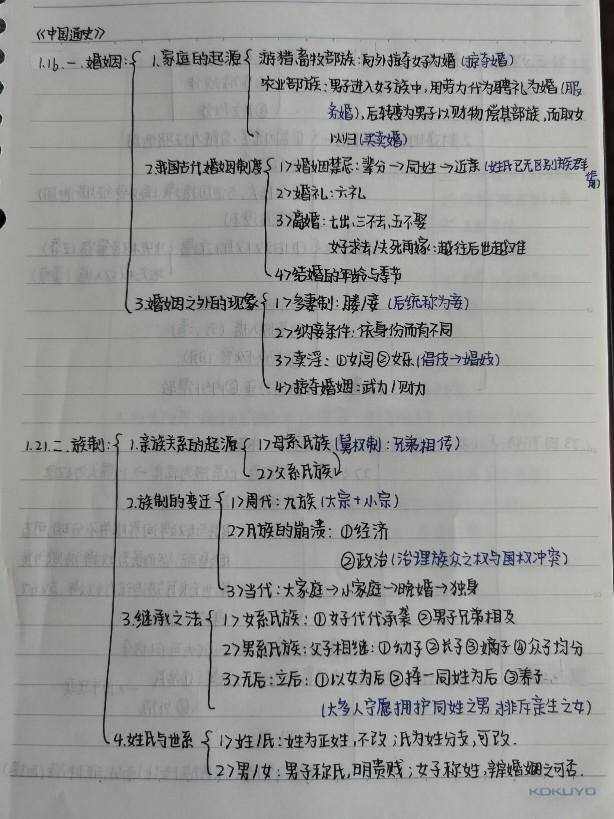 《中国通史》
1.16.一、婚姻: 1.家庭的起源 游猎畜牧部族:向外掠夺女子为婚(掠夺婚)
农业部族:男子进入女子族中,用劳力代为聘礼为婚(服
务婚),后转变为男子以财物偿其部族,而取女
以归(买卖婚)
2.我国古代婚姻制度 1>婚姻禁忌:辈分→同姓→近亲(姓氏已无区别族群
作用)
2>婚礼:六礼
3>离婚:七出,三不去,五不娶
女子求去/夫死再嫁:越往后世越难
4>结婚的年龄与季节
3.婚姻之外的现象 1>多妻制:媵/妾(后统称为妾)
2>纳妾条件:依身份而有不同
3>卖淫:①女闾②女乐(倡伎→娼妓)
4>掠夺婚姻:武力/财力
1.21.二、族制: 1.亲族关系的起源 1>母系氏族(舅权制:兄弟相传)
2>父系氏族
2.族制的变迁 1>周代:九族(大宗+小宗)
2>氏族的崩溃:①经济
②政治(治理族众之权与国权冲突)
3>当代:大家庭→小家庭→晚婚→独身
3.继承之法 1>女系氏族:①女子代代承袭②男子兄弟相及
2>男系氏族:父子相继:①幼子②长子③嫡子④众子均分
3>无后:立后:①以女为后②择一同姓为后③养子
(大多人宁愿拥护同姓之男,排斥亲生之女)
4.姓氏与世系 1>姓/氏:姓为正姓,不改;氏为姓分支,可改.
2>男/女:男子称氏,明贵贱;女子称姓,辨婚姻之可否.
KOKUYO